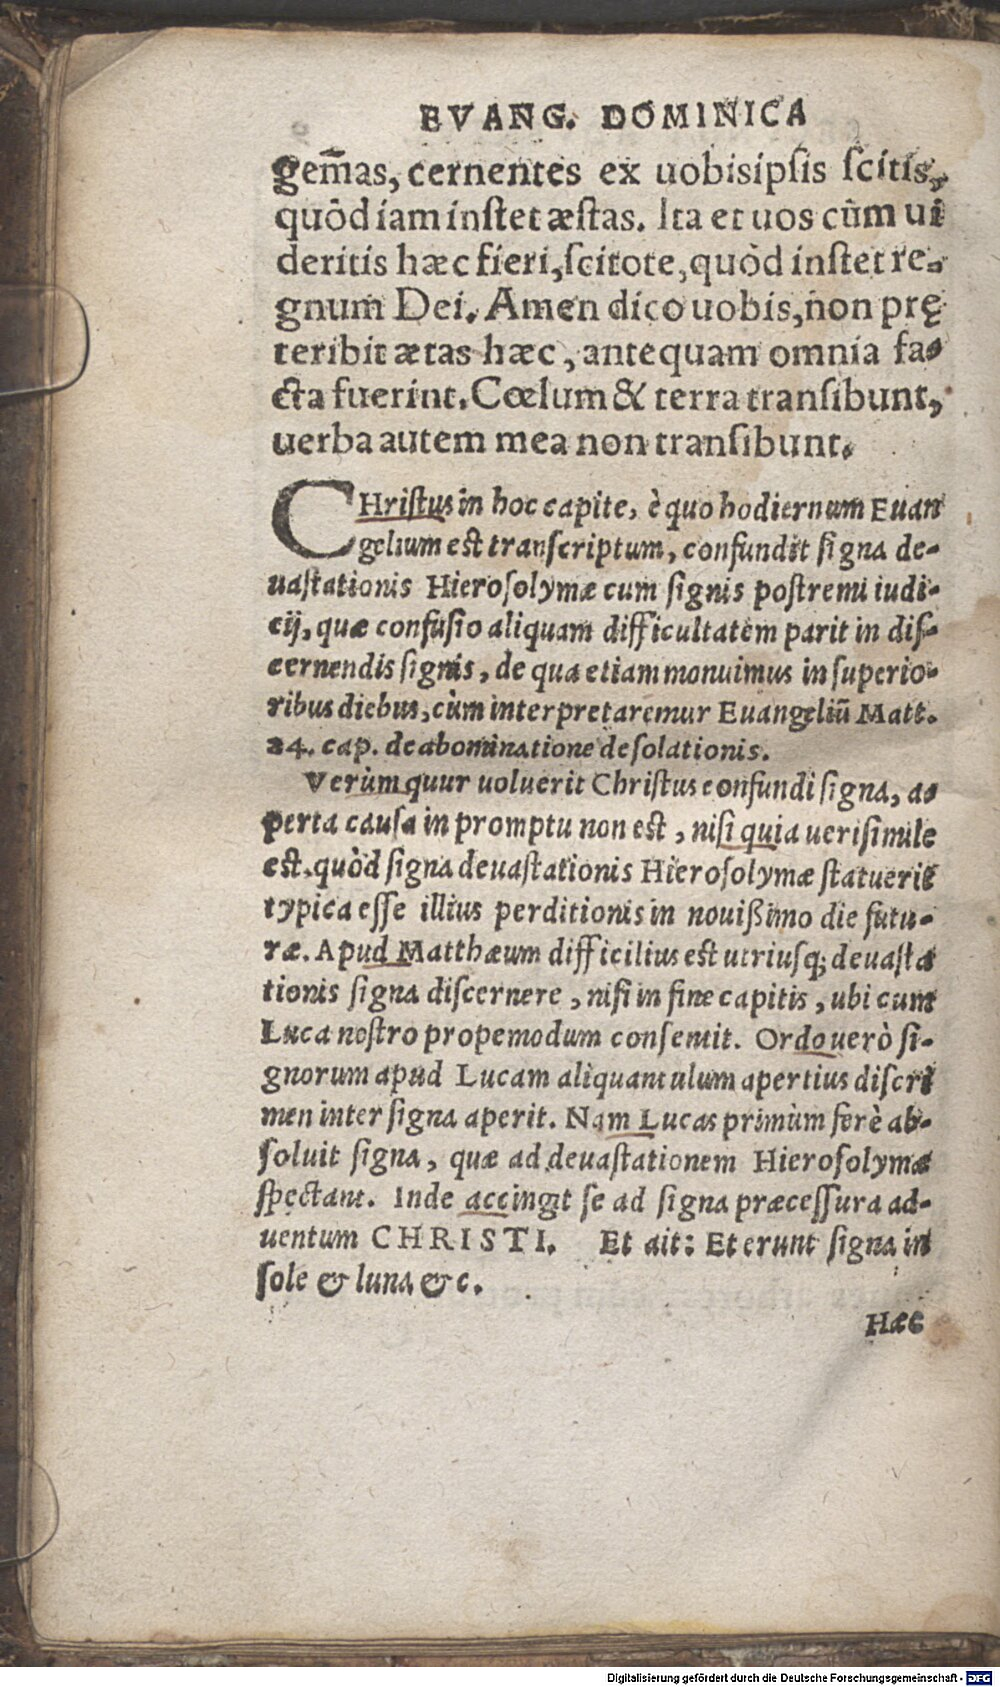 EVANG. DOMINICA
gem̄as, cernentes ex uobisipsis scitis,
quòd iam instet æstas. Ita et uos cùm ui
deritis hæc fieri, scitote, quòd instet re-
gnum Dei. Amen dico uobis, non prę
teribit ætas hæc, antequam omnia fa-
cta fuerint. Cœlum & terra transibunt,
uerba autem mea non transibunt.
CHristus in hoc capite, è quo hodiernum Euan
gelium est transcriptum, confundit signa de-
uastationis Hierosolymæ cum signis postremi iudi-
cij, quæ confusio aliquam difficultatem parit in dis-
cernendis signis, de qua etiam monuimus in superio-
ribus diebus, cùm interpretaremur Euangeliū Matt.
24. cap. de abominatione desolationis.
Verùm quur uoluerit Christus confundi signa, a-
perta causa in promptu non est, nisi quia uerisimile
est, quòd signa deuastationis Hierosolymæ statuerit
typica esse illius perditionis in nouißimo die futu-
ræ. Apud Matthæum difficilius est utriusq; deuasta
tionis signa discernere, nisi in fine capitis, ubi cum
Luca nostro propemodum consentit. Ordo uerò si-
gnorum apud Lucam aliquantulum apertius discri
men inter signa aperit. Nam Lucas primùm ferè ab-
soluit signa, quæ ad deuastationem Hierosolymæ
spectant. Inde accingit se ad signa præcessura ad-
uentum CHRISTI. Et ait: Et erunt signa in
sole & luna &c.
Hæc
Digitalisierung gefördert durch die Deutsche Forschungsgemeinschaft - DFG